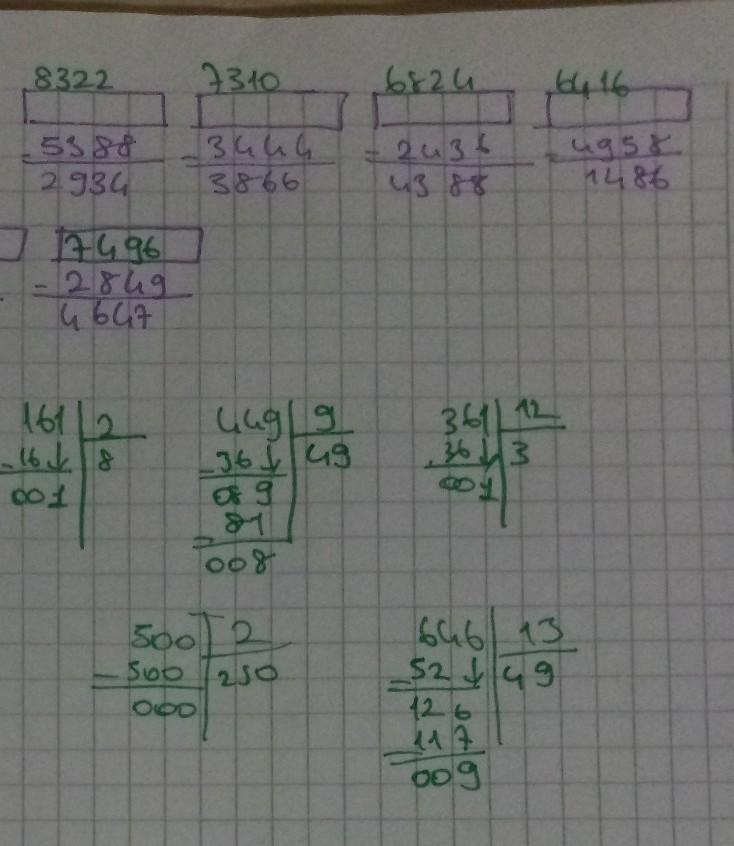 8322 7310 6824 6416
- 5388 - 3444 - 2436 - 4958
2934 3866 4388 1486
7496
- 2849
4647
161 2 449 9 361 12
- 16↓ 8 - 36↓ 49 - 36↓ 3
001 089 001
- 81
008
500 2 646 13
- 500 250 - 52↓ 49
000 126
- 117
009